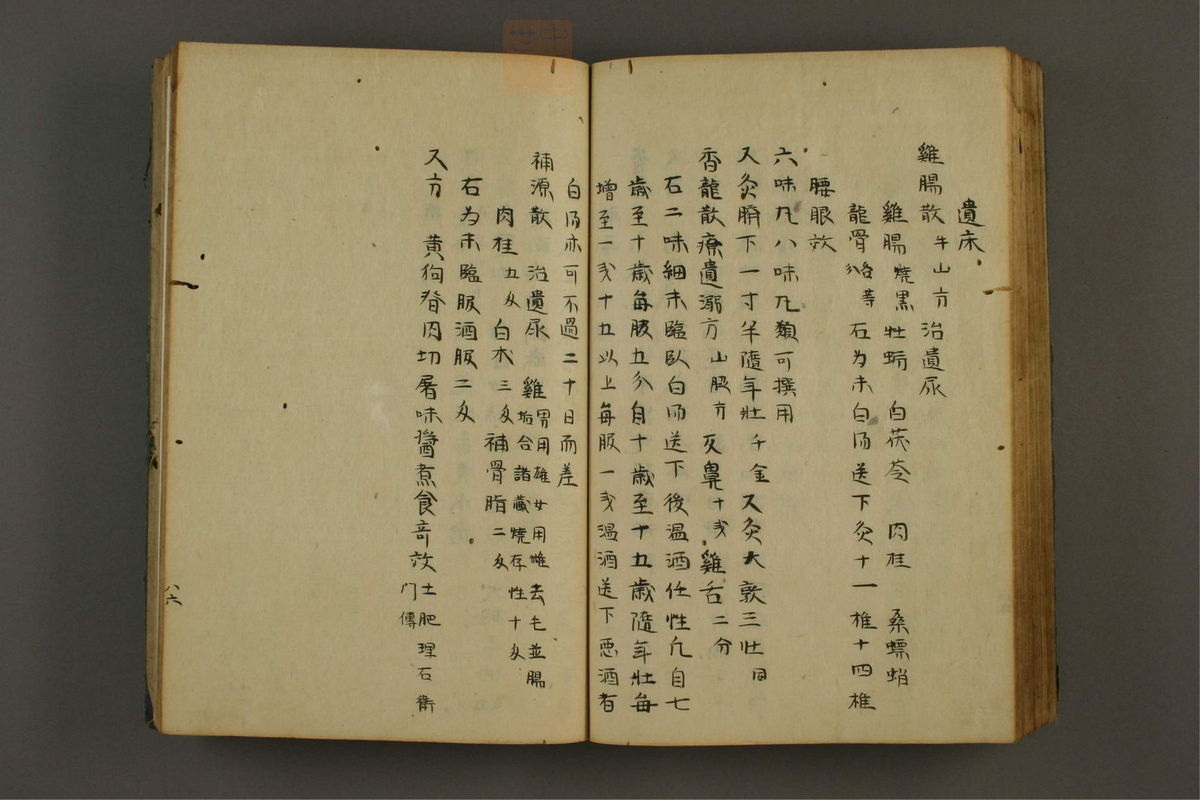 遺床
雞腸散 牛山方 治遺尿
雞腸燒黒 牡蛎 白茯苓 肉桂 桑螵蛸
龍骨 各等 石為末白湯送下灸十一椎十四椎
腰眼效
六味丸八味丸類可撰用
又灸臍下一寸半隨年壯千金又灸大敦三壯同
香龍散療遺溺方 山脇方 反鼻十戔雞舌二分
石二味細末臨臥白湯送下後温酒任性凢自七
歲至十歲每服五分自十歲至十五歲隨年壯每
增至一戔十五以上每服一戔温酒送下惡酒者
白湯亦可不過二十日而差
補源散 治遺尿 雞男用雄女用雌去毛並腸
垢合諸藏燒存性十匁
肉桂五匁 白朮三匁 補骨脂二匁
石為末臨服酒服二匁
又方 黄狗脊肉切屠味醬煮食奇效土肥理石衛
門傳
八六